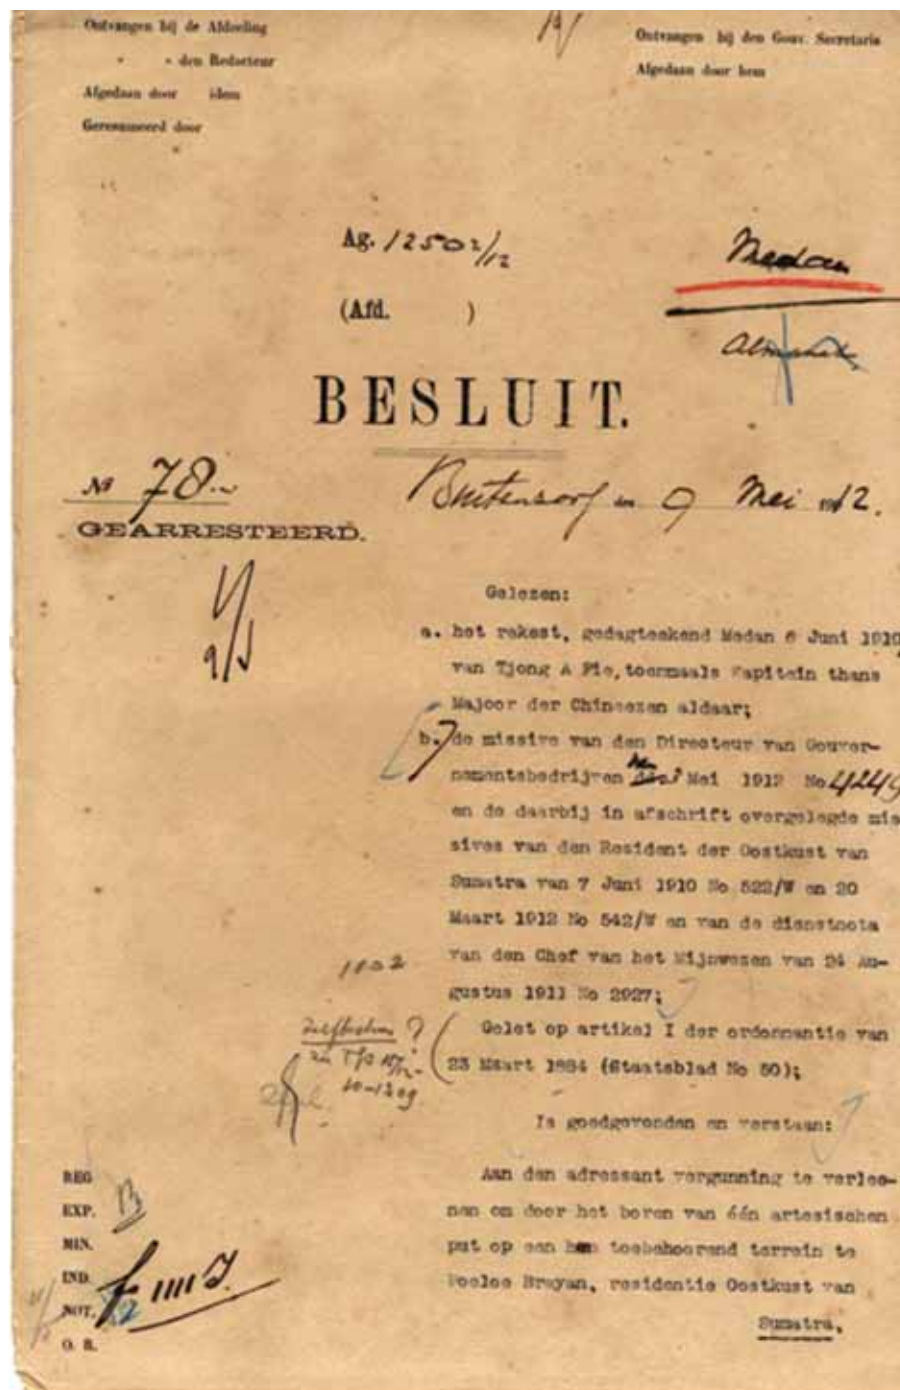 Ontvangen bij de Afdeeling
" " den Redacteur
Afgedaan door idem
Geresumeerd door
Ontvangen bij den Gouv. Secretaris
Afgedaan door hem
Ag. 12502/12
(Afd. )
Medan
BESLUIT.
No 78
GEARRESTEERD.
Buitenzorg den 9 Mei 1912.
Gelezen:
a. het rekest, gedagteekend Medan 6 Juni 1910,
van Tjong A Fie, toenmaals Kapitein thans
Majoor der Chineezen aldaar;
b. de missive van den Directeur van Gouver-
nementsbedrijven Mei 1912 No 4249
en de daarbij in afschrift overgelegde mis-
sives van den Resident der Oostkust van
Sumatra van 7 Juni 1910 No 522/W en 20
Maart 1912 No 542/W en van de dienstnota
van den Chef van het Mijnwezen van 24 Au-
gustus 1911 No 2927;
Gelet op artikel I der ordonnantie van
23 Maart 1884 (Staatsblad No 50);
Is goedgevonden en verstaan:
Aan den adressant vergunning te verlee-
nen om door het boren van één artesischen
put op een hem toebehoorend terrein te
Poeloe Brayan, residentie Oostkust van
Sumatra,
REG
EXP.
MIN.
IND.
NOT.
O. R.